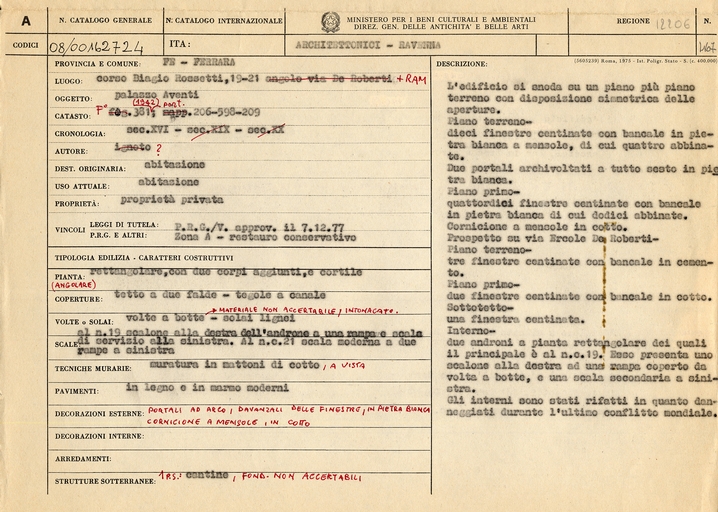 A
N. CATALOGO GENERALE
N. CATALOGO INTERNAZIONALE
MINISTERO PER I BENI CULTURALI E AMBIENTALI
DIREZ. GEN. DELLE ANTICHITA' E BELLE ARTI
REGIONE 12206
N.
CODICI
08/00162724
ITA:
ARCHITETTONICI - RAVENNA
467
PROVINCIA E COMUNE: FE - FERRARA
LUOGO: corso Biagio Rossetti,19-21 angolo via De Roberti + RAM
OGGETTO: palazzo Aventi
(1942) part.
CATASTO: F° fog.381; mapp.206-598-209
CRONOLOGIA: sec.XVI - sec.XIX - sec.XX
AUTORE: ignoto ?
DEST. ORIGINARIA: abitazione
USO ATTUALE: abitazione
PROPRIETÀ: proprietà privata
VINCOLI
LEGGI DI TUTELA: P.R.G./V. approv. il 7.12.77
P.R.G. E ALTRI: Zona A - restauro conservativo
TIPOLOGIA EDILIZIA - CARATTERI COSTRUTTIVI
PIANTA: rettangolare,con due corpi aggiunti,e cortile
(ANGOLARE)
COPERTURE: tetto a due falde - tegole a canale
→ MATERIALE NON ACCERTABILE, INTONACATE.
VOLTE o SOLAI: volte a botte - solai lignei
SCALE: al n.19 scalone alla destra dell'androne a una rampa e scala
di servizio alla sinistra. Al n.c.21 scala moderna a due
rampe a sinistra
TECNICHE MURARIE: muratura in mattoni di cotto, A VISTA
PAVIMENTI: in legno e in marmo moderni
DECORAZIONI ESTERNE: PORTALI AD ARCO, DAVANZALI DELLE FINESTRE, IN PIETRA BIANCA
CORNICIONE A MENSOLE, IN COTTO
DECORAZIONI INTERNE:
ARREDAMENTI:
STRUTTURE SOTTERRANEE: 1 P.S.: cantine, FOND. NON ACCERTABILI
DESCRIZIONE:
(5603239) Roma, 1975 - Ist. Poligr. Stato - S. (c. 400.000)
L'edificio si snoda su un piano più piano
terreno con disposizione simmetrica delle
aperture.
Piano terreno-
dieci finestre centinate con bancale in pie-
tra bianca a mensole, di cui quattro abbina-
te.
Due portali archivoltati a tutto sesto in pie
tra bianca.
Piano primo-
quattordici finestre centinate con bancale
in pietra bianca di cui dodici abbinate.
Cornicione a mensole in cotto.
Prospetto su via Ercole De Roberti-
Piano terreno-
tre finestre centinate con bancale in cemen-
to.
Piano primo-
due finestre centinate con bancale in cotto.
Sottotetto-
una finestra centinata.
Interno-
due androni a pianta rettangolare dei quali
il principale è al n.c.19. Esso presenta uno
scalone alla destra ad una rampa coperto da
volta a botte, e una scala secondaria a sini-
stra.
Gli interni sono stati rifatti in quanto dan-
neggiati durante l'ultimo conflitto mondiale.